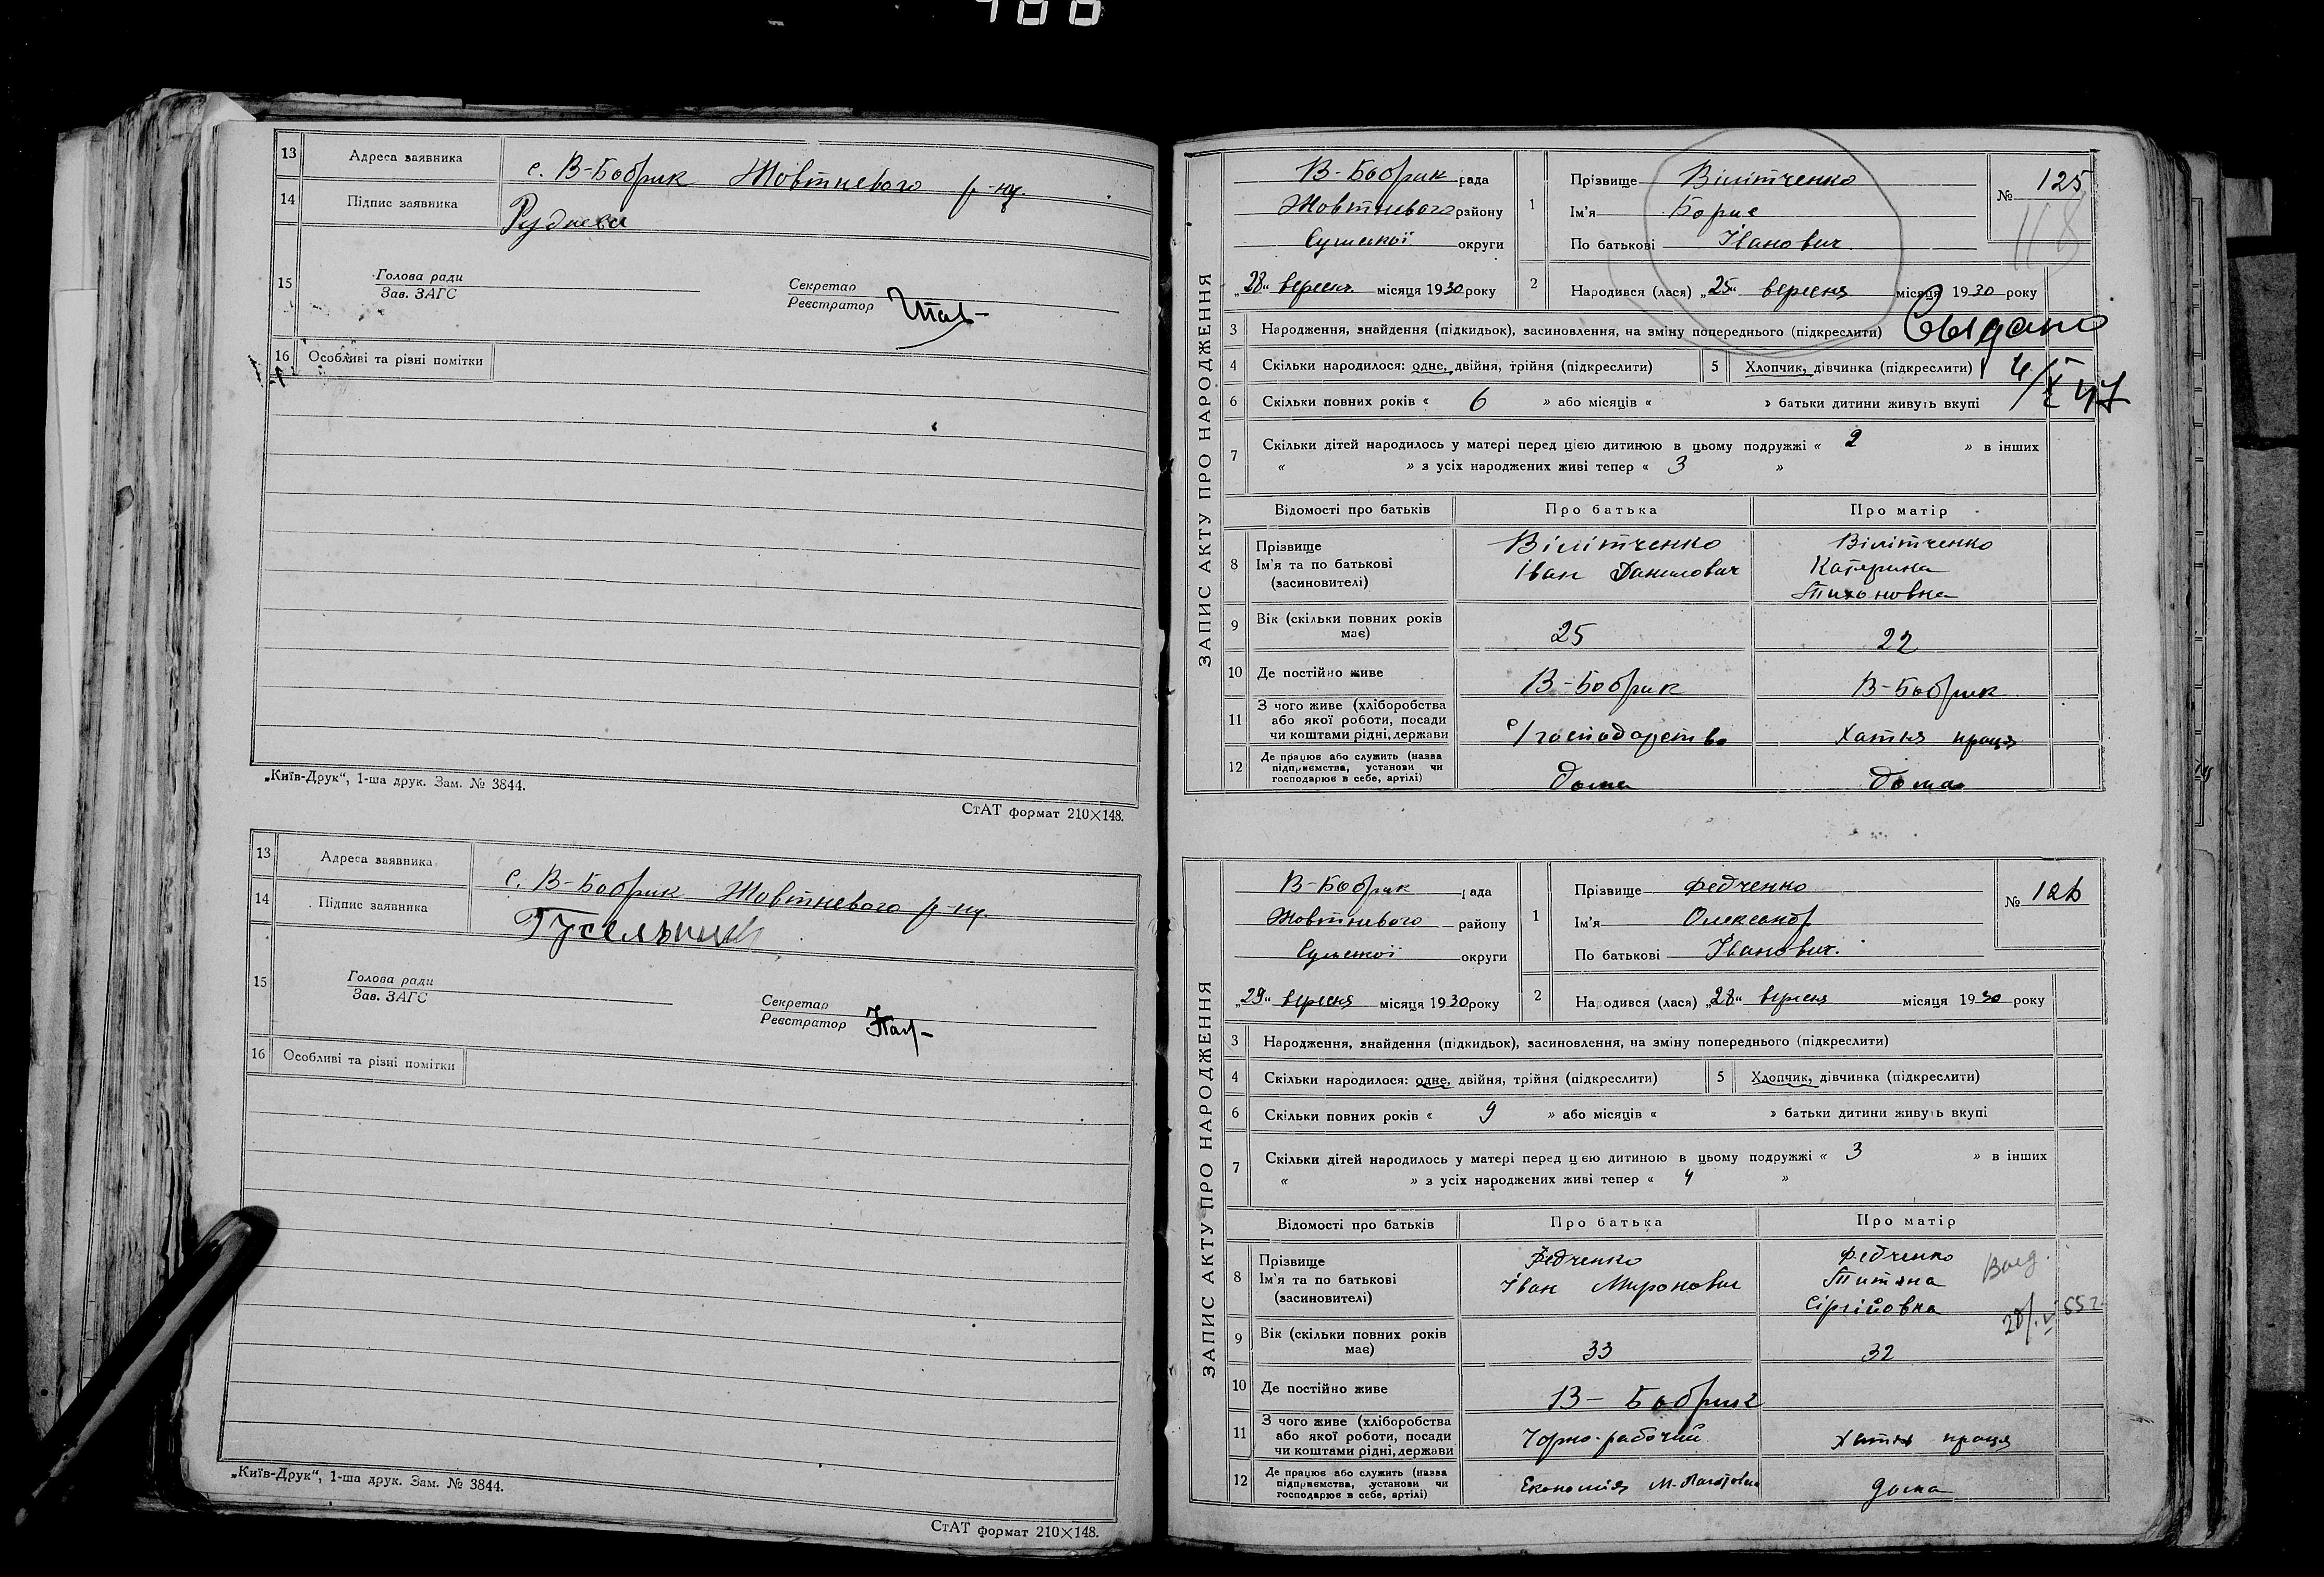 13 Адреса заявника с. В-Бобрик Жовтневого р-ну.
14 Підпис заявника Руднєва
15 Голова ради
Зав. ЗАГС
Секретар
Реєстратор
16 Особливі та різні помітки
„Київ-Друк“, 1-ша друк. Зам. № 3844.
СтАТ формат 210×148.
13 Адреса заявника с. В-Бобрик Жовтневого р-ну.
14 Підпис заявника
15 Голова ради
Зав. ЗАГС
Секретар
Реєстратор
16 Особливі та різні помітки
„Київ-Друк“, 1-ша друк. Зам. № 3844.
СтАТ формат 210×148.
ЗАПИС АКТУ ПРО НАРОДЖЕННЯ
В-Бобрик рада
Жовтневого району
Сумської округи
„28“ вересня місяця 1930 року
1 Прізвище Вілітченко
Ім'я Борис
По батькові Іванович
№ 125
118
2 Народився (лася) „25“ вересня місяця 1930 року
3 Народження, знайдення (підкидьок), засиновлення, на зміну попереднього (підкреслити)
4 Скільки народилося: одне, двійня, трійня (підкреслити) 5 Хлопчик, дівчинка (підкреслити)
6 Скільки повних років « 6 » або місяців « » батьки дитини живуть вкупі
7 Скільки дітей народилось у матері перед цією дитиною в цьому подружжі « 2 » в інших
« » з усіх народжених живі тепер « 3 »
Відомості про батьків Про батька Про матір
8 Прізвище Вілітченко Вілітченко
Ім'я та по батькові Іван Данилович Катерина
(засновителі) Тихоновна
9 Вік (скільки повних років
має) 25 22
10 Де постійно живе В-Бобрик В-Бобрик
11 З чого живе (хліборобства
або якої роботи, посади
чи коштами рідні, держави С/господарство Хатня праця
12 Де працює або служить (назва
підприємства, установи чи
господарює в себе, артілі) дома дома
ЗАПИС АКТУ ПРО НАРОДЖЕННЯ
В-Бобрик рада
Жовтневого району
Сумської округи
„29“ вересня місяця 1930 року
1 Прізвище Федченко
Ім'я Олександр
По батькові Іванович.
№ 126
2 Народився (лася) „28“ вересня місяця 1930 року
3 Народження, знайдення (підкидьок), засиновлення, на зміну попереднього (підкреслити)
4 Скільки народилося: одне, двійня, трійня (підкреслити) 5 Хлопчик, дівчинка (підкреслити)
6 Скільки повних років « 9 » або місяців « » батьки дитини живуть вкупі
7 Скільки дітей народилось у матері перед цією дитиною в цьому подружжі « 3 » в інших
« » з усіх народжених живі тепер « 4 »
Відомості про батьків Про батька Про матір
8 Прізвище Федченко Федченко
Ім'я та по батькові Іван Миронович Титяна
(засиновителі) Сіргійовна
9 Вік (скільки повних років
має) 33 32
10 Де постійно живе В-Бобрик
11 З чого живе (хліборобства
або якої роботи, посади
чи коштами рідні, держави Чорно-рабочий хатня праця
12 Де працює або служить (назва
підприємства, установи чи
господарює в себе, артілі) Економія дома